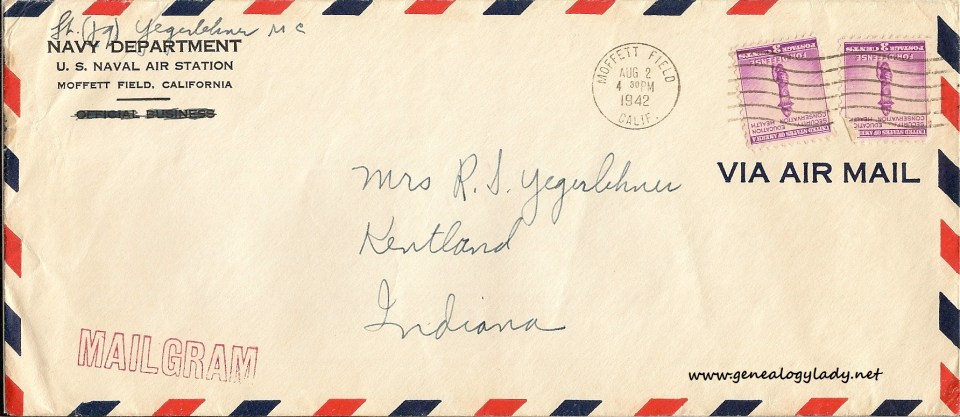 Lt. (jg) Yegerlehner M C
NAVY DEPARTMENT
U. S. NAVAL AIR STATION
MOFFETT FIELD, CALIFORNIA
OFFICIAL BUSINESS
MOFFETT FIELD
AUG 2
4 30PM
1942
CALIF.
POSTAGE 3 CENTS
FOR DEFENSE
SECURITY
EDUCATION
CONSERVATION
HEALTH
UNITED STATES OF AMERICA
POSTAGE 3 CENTS
FOR DEFENSE
SECURITY
EDUCATIO
CONSERVATION
HEALTH
UNITED STATES OF AMERICA
VIA AIR MAIL
Mrs R. S. Yegerlehner
Kentland
Indiana
MAILGRAM
www.genealogylady.net